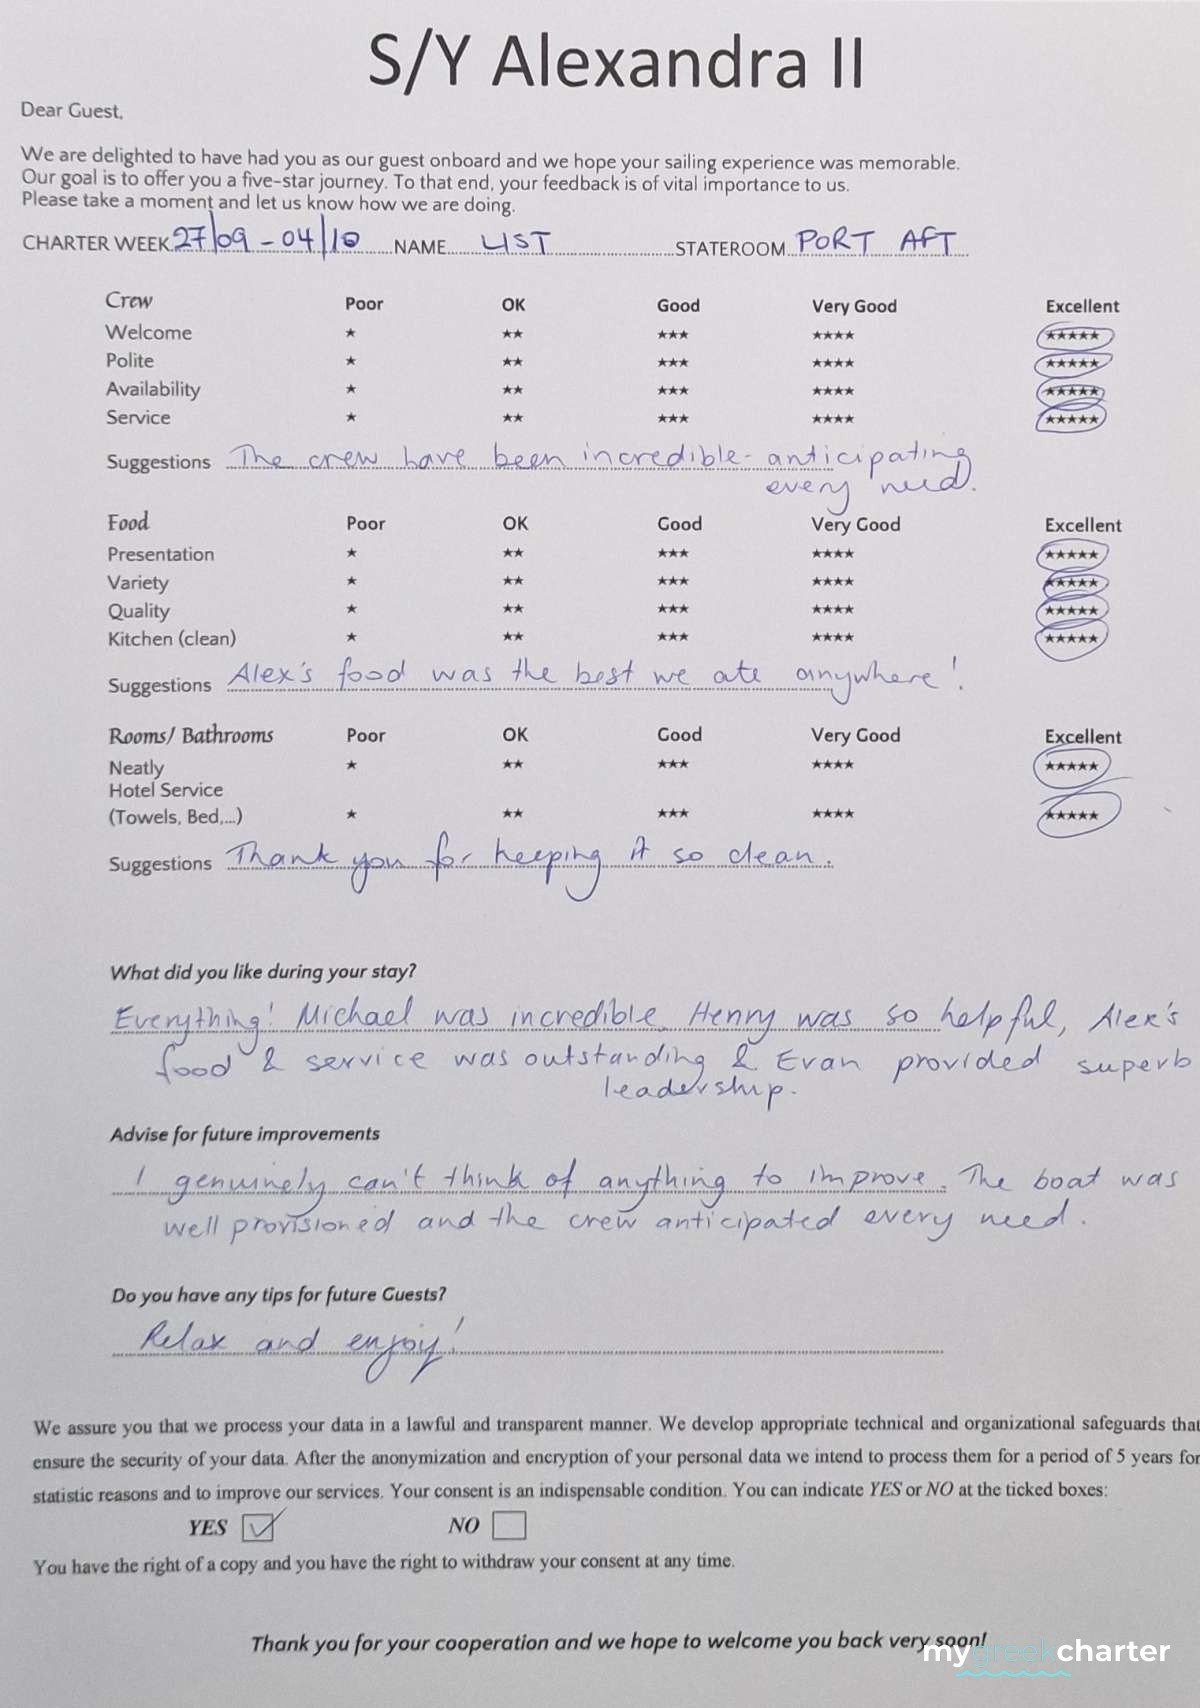 S/Y Alexandra II
Dear Guest,
We are delighted to have had you as our guest onboard and we hope your sailing experience was memorable.
Our goal is to offer you a five-star journey. To that end, your feedback is of vital importance to us.
Please take a moment and let us know how we are doing.
CHARTER WEEK 27/09 - 04/10 NAME LIST STATEROOM PORT AFT
Crew Poor OK Good Very Good Excellent
Welcome ★ ★★ ★★★ ★★★★ ★★★★★
Polite ★ ★★ ★★★ ★★★★ ★★★★★
Availability ★ ★★ ★★★ ★★★★ ★★★★★
Service ★ ★★ ★★★ ★★★★ ★★★★★
Suggestions The crew have been incredible - anticipating
every need.
Food Poor OK Good Very Good Excellent
Presentation ★ ★★ ★★★ ★★★★ ★★★★★
Variety ★ ★★ ★★★ ★★★★ ★★★★★
Quality ★ ★★ ★★★ ★★★★ ★★★★★
Kitchen (clean) ★ ★★ ★★★ ★★★★ ★★★★★
Suggestions Alex's food was the best we ate anywhere!
Rooms/ Bathrooms Poor OK Good Very Good Excellent
Neatly ★ ★★ ★★★ ★★★★ ★★★★★
Hotel Service
(Towels, Bed,...) ★ ★★ ★★★ ★★★★ ★★★★★
Suggestions Thank you for keeping it so clean.
What did you like during your stay?
Everything! Michael was incredible, Henry was so helpful, Alex's
food & service was outstanding & Evan provided superb
leadership.
Advise for future improvements
I genuinely can't think of anything to improve. The boat was
well provisioned and the crew anticipated every need.
Do you have any tips for future Guests?
Relax and enjoy!
We assure you that we process your data in a lawful and transparent manner. We develop appropriate technical and organizational safeguards that
ensure the security of your data. After the anonymization and encryption of your personal data we intend to process them for a period of 5 years for
statistic reasons and to improve our services. Your consent is an indispensable condition. You can indicate YES or NO at the ticked boxes:
YES NO
You have the right of a copy and you have the right to withdraw your consent at any time.
Thank you for your cooperation and we hope to welcome you back very soon!
mygreekcharter